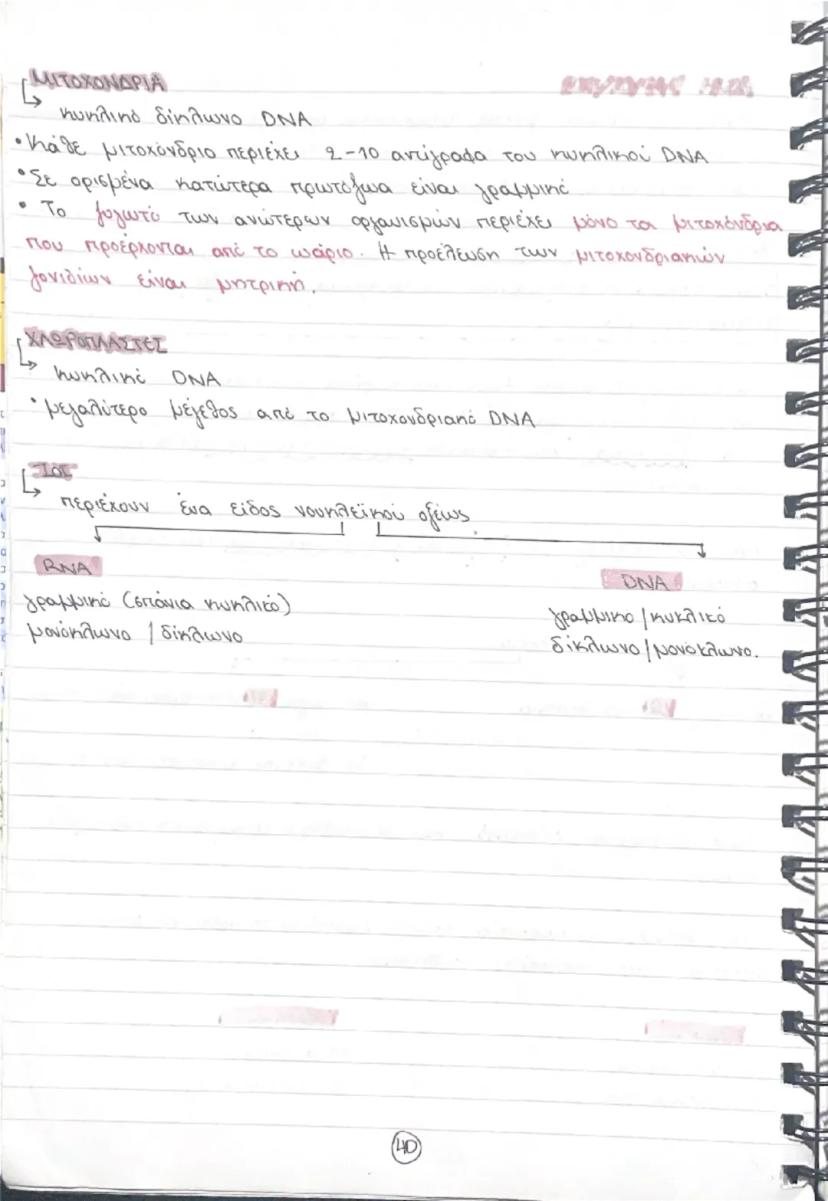 ΜΙΤΟΧΟΝΔΡΙΑ
κυκλικό δίκλωνο DNA
•Κάθε μιτοχόνδριο περιέχει 2-10 αντίγραφα του κυκλικού DNA
•Σε ορισμένα κατώτερα πρωτόζωα είναι γραμμικό
• Το ζυγωτό των ανώτερων οργανισμών περιέχει μόνο τα μιτοχόνδρια
που προέρχονται από το ωάριο. Η προέλευση των μιτοχονδριακών
γονιδίων είναι μητρική.
ΧΛΩΡΟΠΛΑΣΤΕΣ
κυκλικό DNA
•μεγαλύτερο μέγεθος από το μιτοχονδριακό DNA
ΙΟΙ
περιέχουν ένα είδος νουκλεϊκού οξέως.
RNA
γραμμικό (σπάνια κυκλικό)
μονόκλωνο / δίκλωνο
DNA
γραμμικο / κυκλικό
δίκλωνο / μονόκλωνο.
40